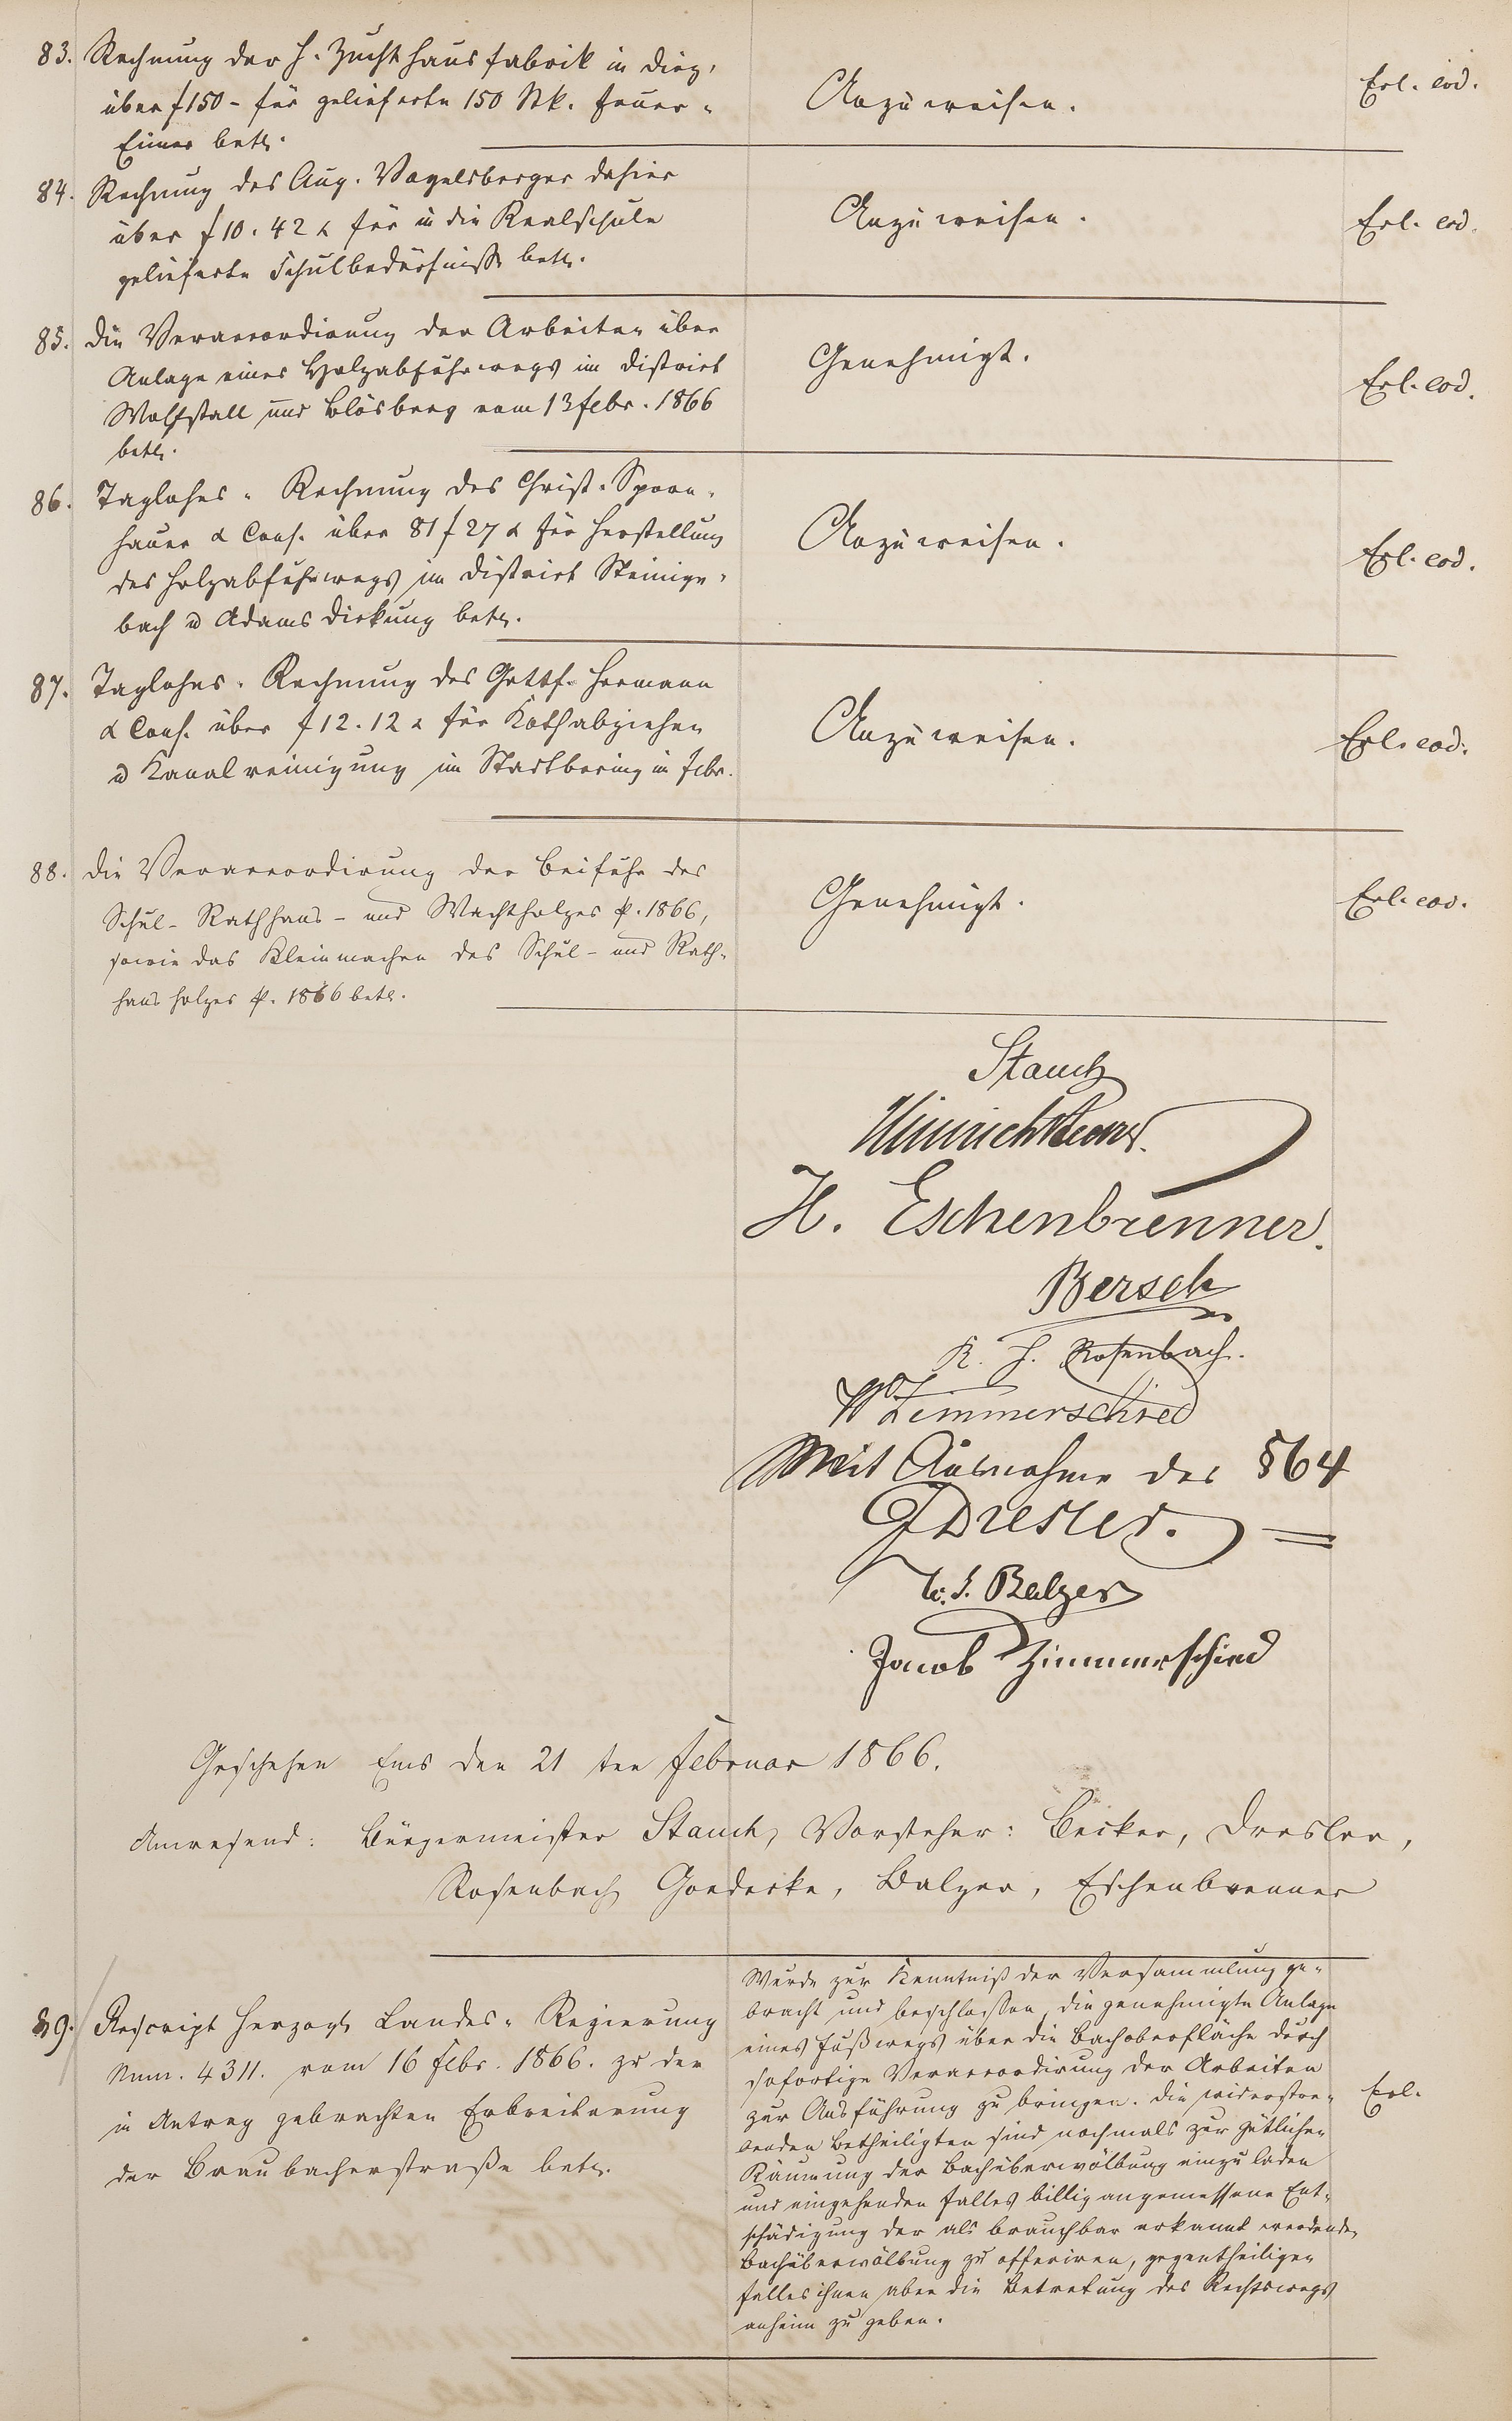 83. Rechnung der H. Zuchthausfabrik in Diez,
über f 150 - für gelieferte 150 Stk. Feuer-
Eimer betr.
Anzuweisen.
Erl. eod.
84. Rechnung des Aug. Vogelsberger dahier
über f 10. 42 x für in die Realschule
gelieferte Schulbedürfnisse betr.
Anzuweisen.
Erl. eod.
85. Die Veraccordirung der Arbeiten über
Anlage eines Holzabfuhrwegs im District
Wolfstall und Blösberg vom 13 Febr. 1866
betr.
Genehmigt.
Erl. eod.
86. Taglohns-Rechnung des Christ. Sporn-
hauer & Cons. über 81 f 27 x für Herstellung
des Holzabfuhrwegs im District Steinige-
bach u Adams Dickung betr.
Anzuweisen.
Erl. eod.
87. Taglohns-Rechnung des Gottf. Hermann
& Cons. über f 12. 12 x für Kothabziehen
u Kanalreinigung im Stadtbering in Febr.
Anzuweisen.
Erl. eod.
88. Die Veraccordirung der Beifuhr des
Schul- Rathhaus- und Wachtholzes p. 1866,
sowie das Kleinmachen des Schul- und Rath-
hausholzes p. 1866 betr.
Genehmigt.
Erl. eod.
Stauch
H. Eschenbrenner.
Bersch
K. H. Rosenbach.
W Zimmerschied
Mit Ausnahme des § 64
J Dresler.
W. J. Balzer
Jacob Zimmerschied
Geschehen Ems den 21 ten Februar 1866.
Anwesend: Bürgermeister Stauch, Vorsteher: Becker, Dresler,
Rosenbach, Goedecke, Balzer, Eschenbrenner
89. Rescript Herzogl. Landes-Regierung
Num. 4311. vom 16 Febr. 1866. zu der
in Antrag gebrachten Erbreiterung
der Braubacherstraße betr.
Wurde zur Kenntniß der Versammlung ge-
bracht und beschlossen, die genehmigte Anlage
eines Fußwegs über die Bachoberfläche durch
sofortige Veraccordirung der Arbeiten
zur Ausführung zu bringen. Die widerstre-
benden Betheiligten sind nochmals zur gütlichen
Räumung der Bachüberwölbung einzuladen
und eingehenden Falles billig angemessene Ent-
schädigung der als brauchbar erkannt werdenden
Bachüberwölbung zu offeriren, gegentheiligen
Falles ihnen aber die Betretung des Rechtswegs
anheim zu geben.
Erl.